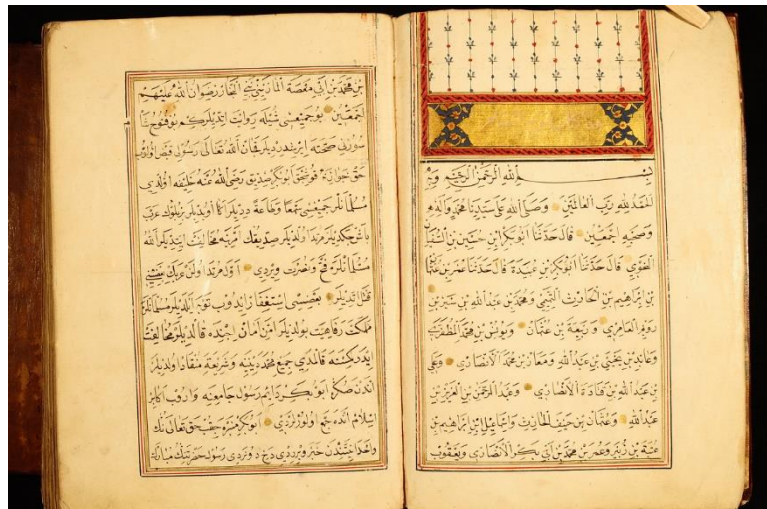 بسم الله الرحمن الرحيم وبه
الحمد لله رب العالمين وصلى الله على سيدنا محمد واله
وصحبه اجمعين قال حدثنا ابو بكر بن حسين بن السفيان
النحوي قال حدثنا ابو بكر بن عبيدة قال حدثنا عمر بن عثمان
بن ابراهيم بن الحارث التيمي ومحمد بن عبد الله بن
العامري وربيعة بن عثمان ويونس بن محمد المظفري
وعابد بن يحيى بن عبد الله ومعاذ بن محمد الانصاري
بن عبد الله بن قتادة الانصاري وعبد الرحمن بن العزيز بن
عبد الله وعثمان بن حنيف الحارث واسماعيل بن ابراهيم بن
عتبة بن زبير وعمر بن محمد بن ابي بكر الانصاري ويعقوب
بن محمد بن ابي صعصة المازيني بني النجار رضوان الله عليهم
اجمعين بو جميعسى شيله روايت ايتديلر كم بو فتوح شام
سوزنى صحته ايرشدرديلر قچان الله تعالى رسولى قبض اولوب
حق جوارنه قوشحق ابوبكر صديق رضى الله عنه خليفه اولدى
مسلمانلر جميعسى سمعا وطاعة ديديلر اكا اويديلر بر بلوك عرب
باش چكديلر مرتد اولديلر صديقك امرينه مخالفت ايتديلر الله
مسلمانلره فتح ونصرت ويردى اول مرتد اولن عربك بعضيني
قتل ايديلر بعضسى استغفار ايدوب توبه ايلديلر مسلمانلر
مملكت رفاهيت بولديلر امن امان ايچنده قالديلر مخالفت
ايدر كمسنه قالمدى جميع محمد دينينه وشريعته منقاد اولديلر
اندن صكره ابو بكر دايم رسول جامعينه واروب اكابر
اسلام انده جمع اولورلردى ابوبكر منبره چقب حق تعالى نك
واحدانيتيندن خبر ويرردى دخى رسول حضرتينك مبارك